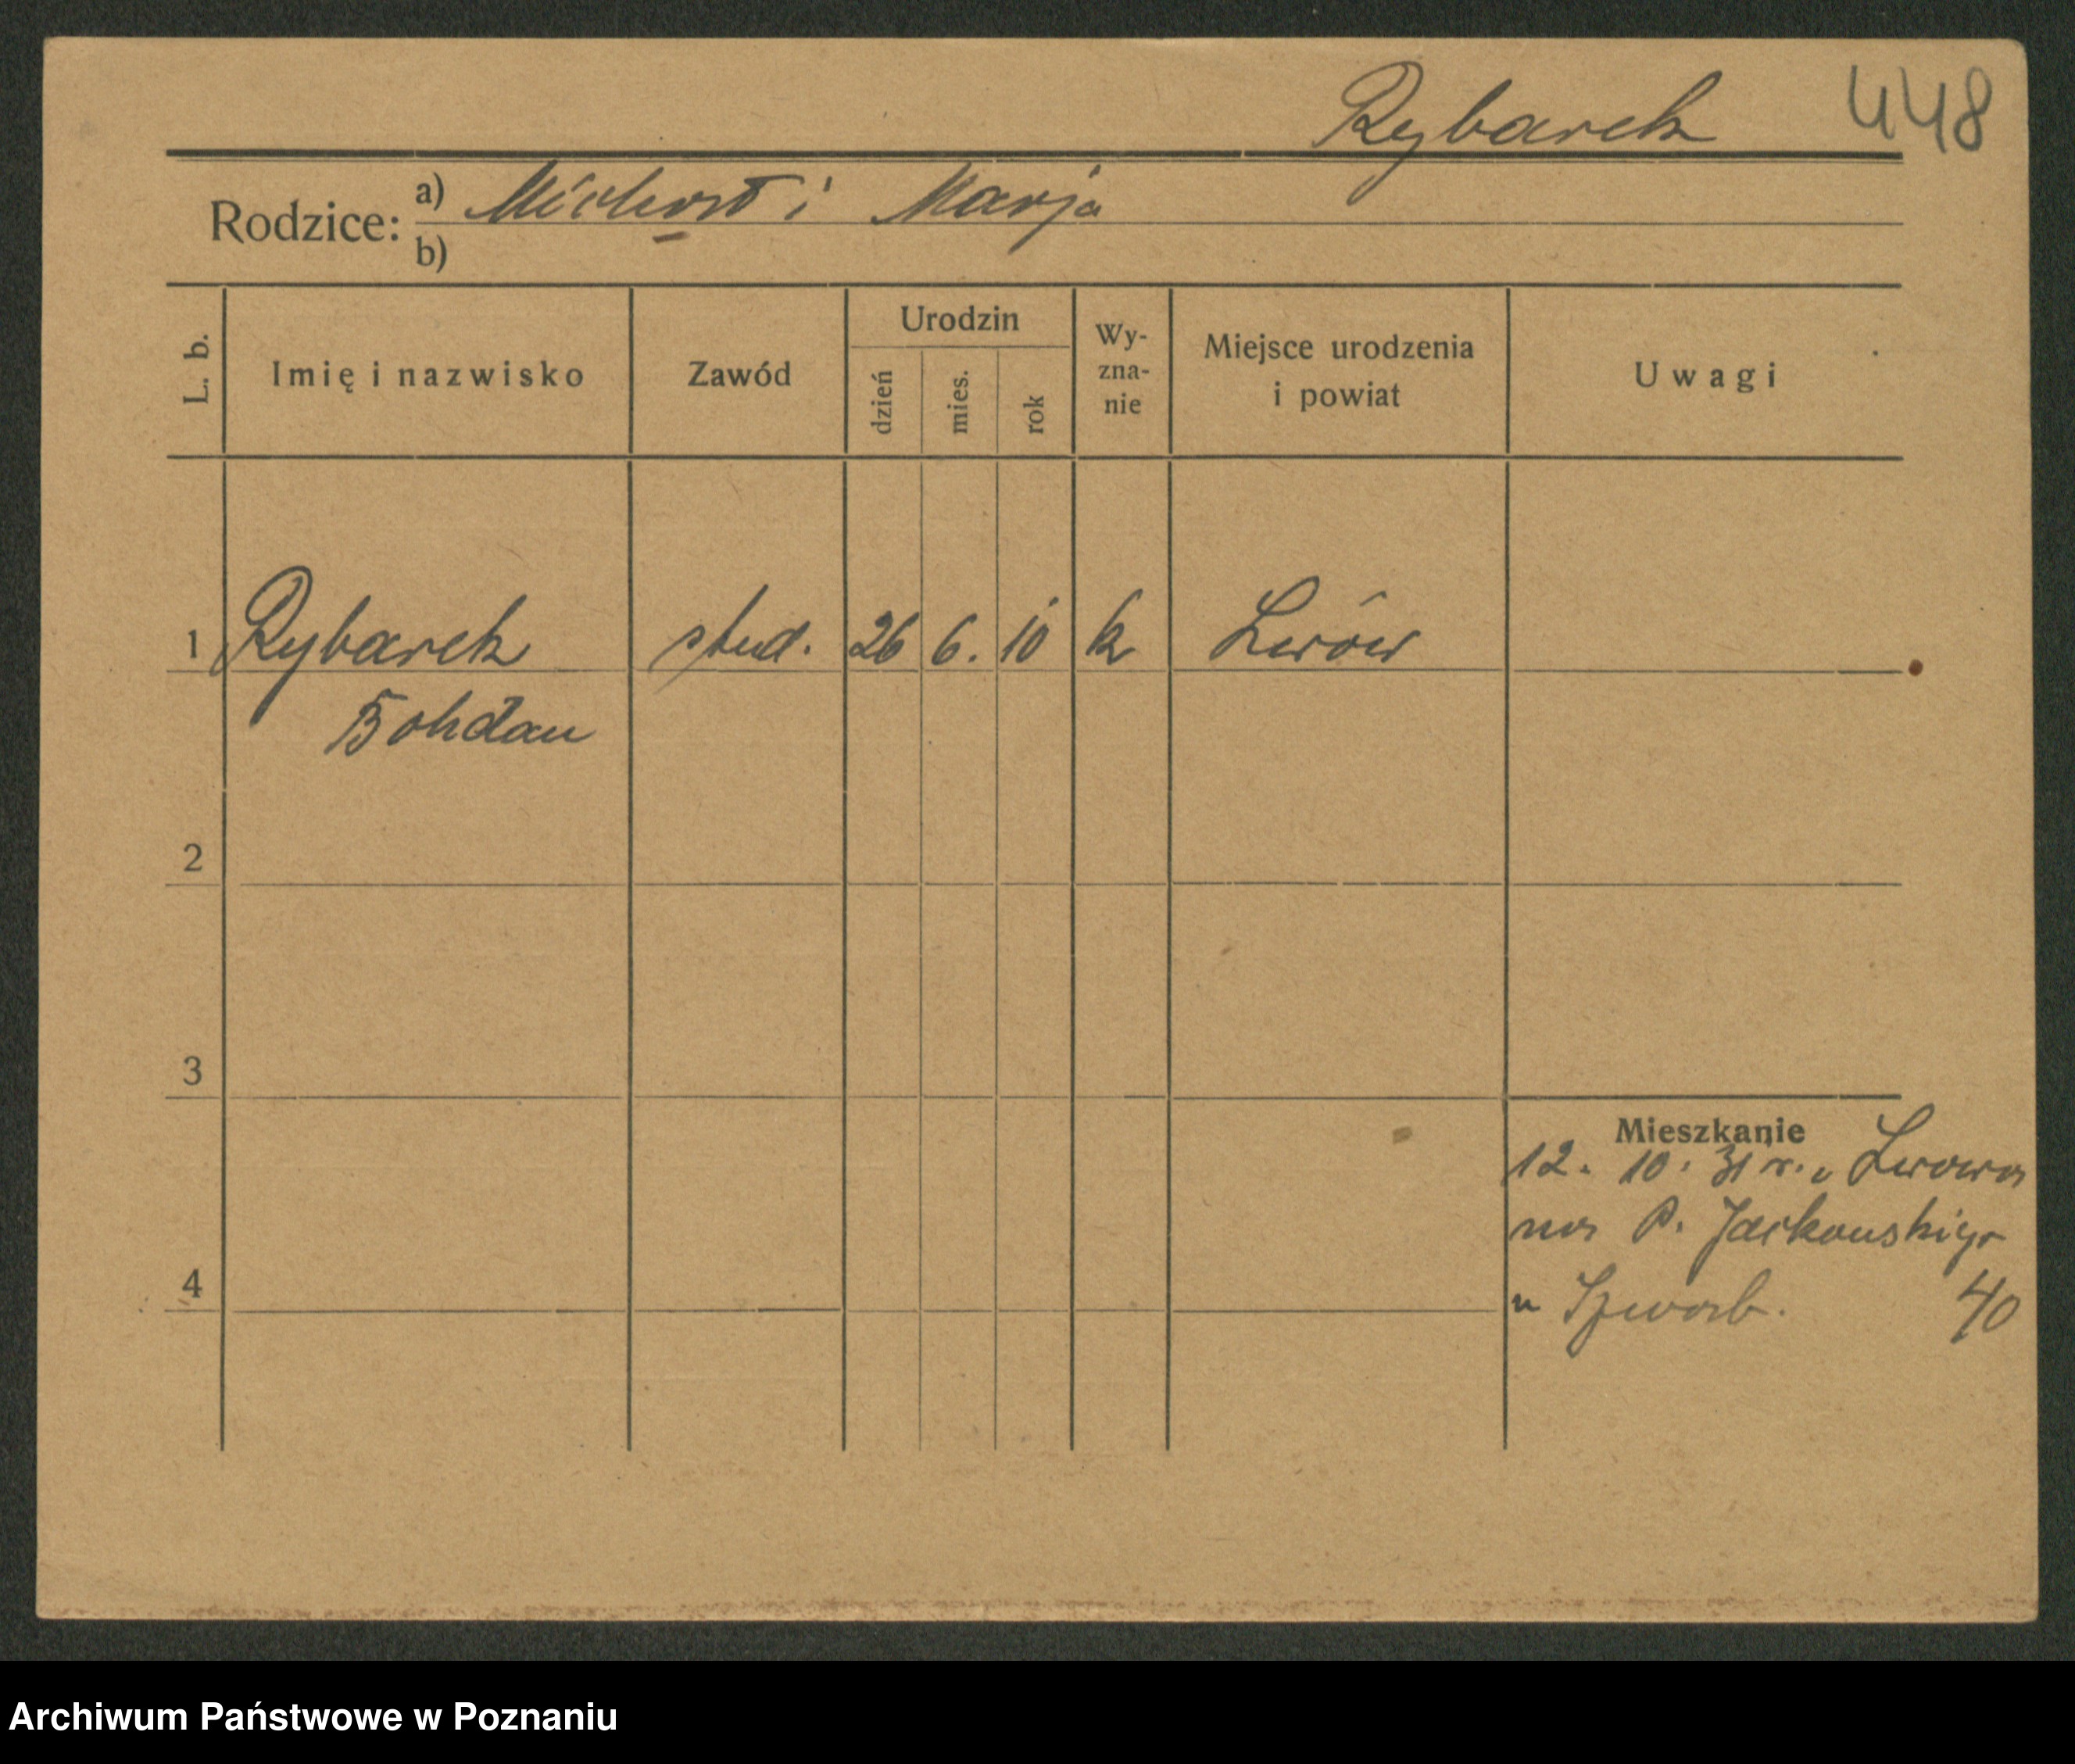 Rybarek 448
Rodzice: a) Michał i Marja
b)
L. b. Imię i nazwisko Zawód Urodzin dzień mies. rok Wy-zna-nie Miejsce urodzenia i powiat Uwagi
1 Rybarek stud. 26 6. 10 k Lwów
Bohdan
2
3
Mieszkanie
12. 10. 31 r. z Lwowa
na P. Jackowskiego
4 u Szwarb. 40
Archiwum Państwowe w Poznaniu